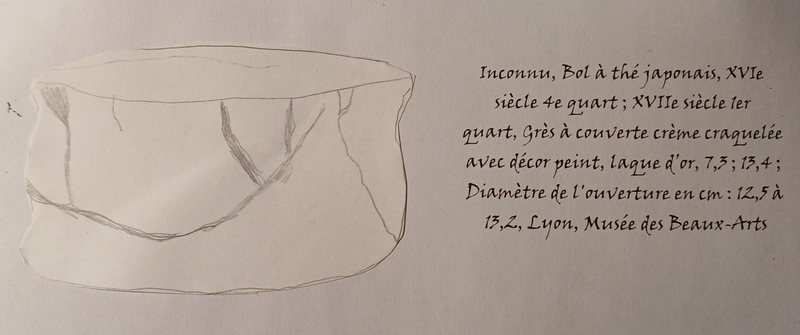 Inconnu, Bol à thé japonais, XVIe
siècle 4e quart ; XVIIe siècle 1er
quart, Grès à couverte crème craquelée
avec décor peint, laque d'or, 7,3 ; 13,4 ;
Diamètre de l'ouverture en cm : 12,5 à
13,2, Lyon, Musée des Beaux-Arts